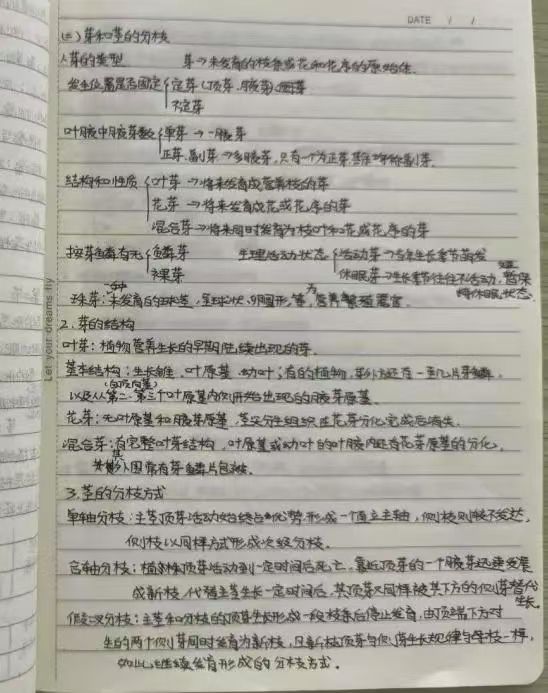 DATE / /
(二) 芽和茎的分枝
1.芽的类型 芽→未发育的枝条或花和花序的原始体.
发生位置是否固定 定芽(顶芽、腋芽)
不定芽
叶腋中腋芽数 单芽→一腋芽
正芽、副芽→多腋芽,只有一个为正芽,其余均称副芽.
结构和性质 叶芽→将来发育成营养枝的芽
花芽→将来发育成花或花序的芽
混合芽→将来同时发育为枝叶和花或花序的芽
按芽鳞有无 鳞芽 生理活动状态 活动芽→当年生长季节萌发
裸芽 休眠芽→生长季节往往不活动,暂保持休眠状态.
珠芽:一种未发育的球茎,呈球状、卵圆形等,为营养繁殖器官.
2.芽的结构
叶芽:植物营养生长的早期陆续出现的芽.
基本结构:生长锥、叶原基、幼叶;有的植物,芽外还有一至几片芽鳞,
以及从第二、第三个叶原基内侧开始出现的腋芽原基.
花芽:无叶原基和腋芽原基,茎尖分生组织在花芽分化完成后消失.
混合芽:有完整叶芽结构,叶原基或幼叶的叶腋内还有花芽原基的分化,
其外围常有芽鳞片包被.
3.茎的分枝方式
单轴分枝:主茎顶芽活动始终占优势,形成一个直立主轴,侧枝则较不发达,
侧枝以同样方式形成次级分枝.
合轴分枝:植株顶芽活动到一定时间后死亡,靠近顶芽的一个腋芽迅速发展
成新枝,代替主茎生长一定时间后,其顶芽又同样被其下方的侧芽替代生长.
假二叉分枝:主茎和分枝的顶芽生长形成一段枝条后停止发育,由顶端下方对
生的两个侧芽同时发育为新枝,且新枝顶芽与侧芽生长规律与母枝一样,
如此继续发育形成的分枝方式.
Let your dreams fly